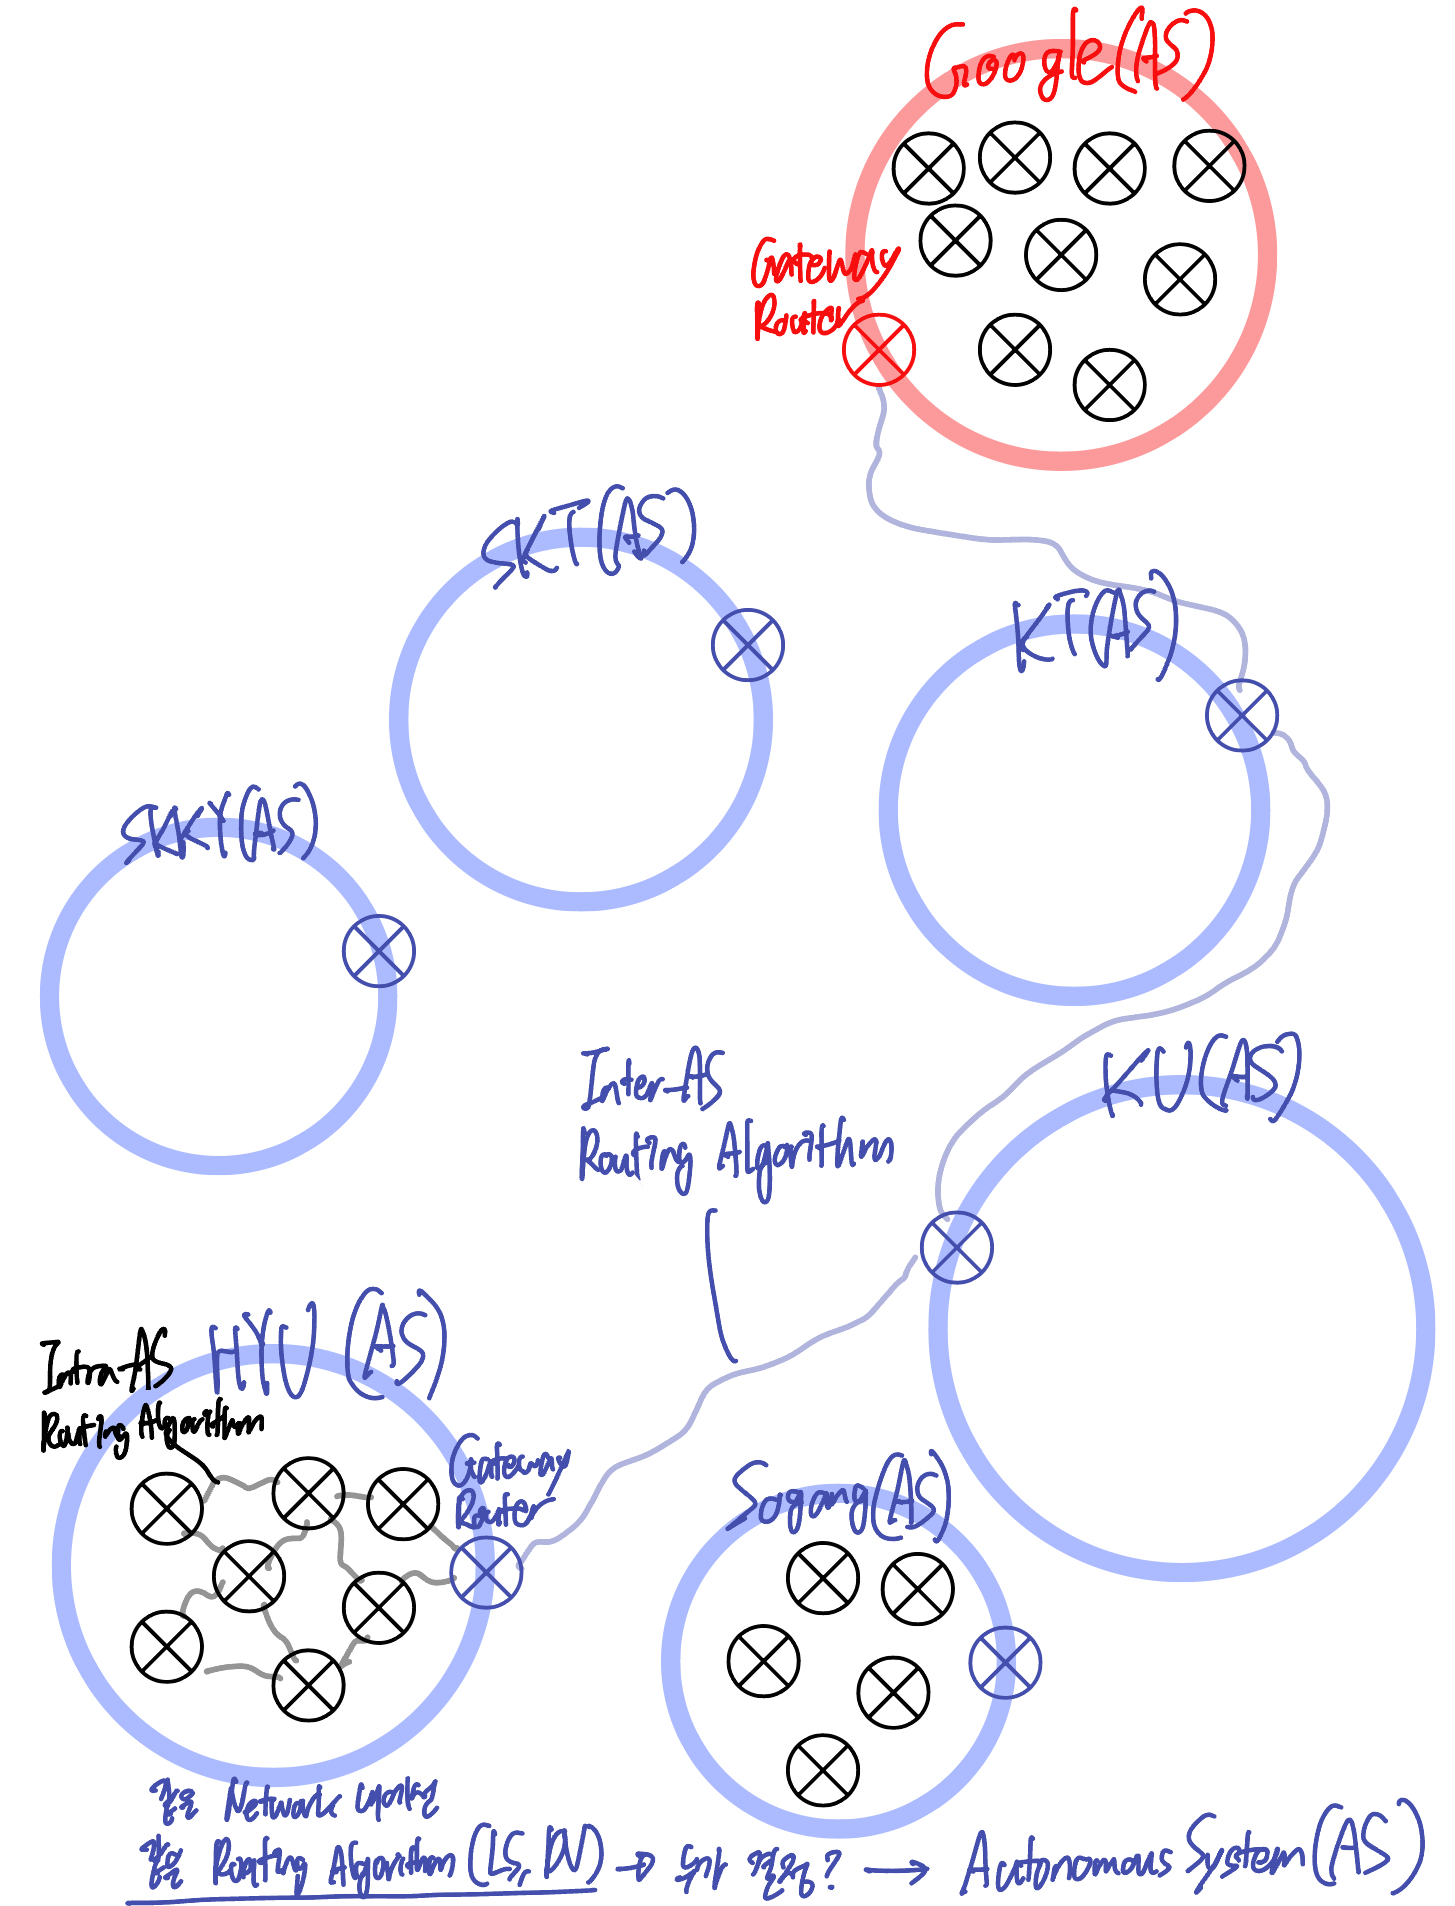 Google(AS)
Gateway
Router
SKT(AS)
KT(AS)
SKKY(AS)
Inter-AS
Routing Algorithm
KU(AS)
HYU (AS)
Intra-AS
Routing Algorithm
Gateway
Router
Sogang(AS)
같은 Network 내에선
같은 Routing Algorithm(LS, DV) → 누가 결정? → Autonomous System(AS)